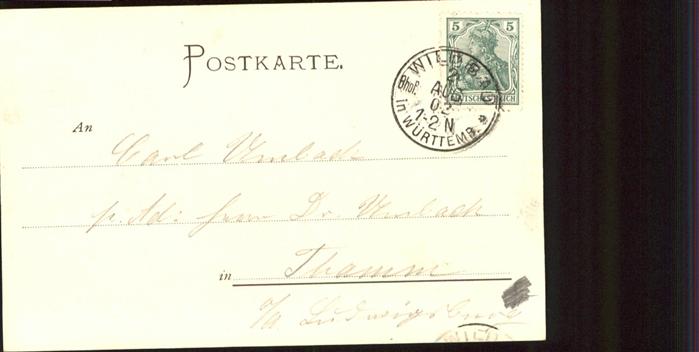 POSTKARTE.
5 5
DEUTSCHES REICH
WILDBAD
Bhof.
AUG
02
1-2 N
in WÜRTTEMB.
An
Carl Umbach
p. Ad: Herrn Dr. Umbach
in Thamm
b/a Ludwigsburg
WILD